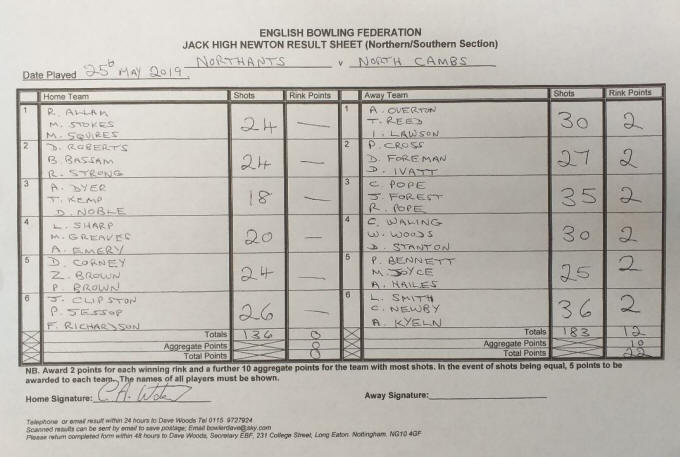 ENGLISH BOWLING FEDERATION
JACK HIGH NEWTON RESULT SHEET (Northern/Southern Section)
Date Played 25th MAY 2019 NORTHANTS v NORTH CAMBS
Home Team Shots Rink Points Away Team Shots Rink Points
1 R. ALLAM 1 A. OVERTON
M. STOKES 24 — T. REED 30 2
M. SQUIRES I. LAWSON
2 D. ROBERTS 2 P. CROSS
B. BASSAM 24 — D. FOREMAN 27 2
R. STRONG D. IVATT
3 A. DYER 3 C. POPE
T. KEMP 18 — J. FOREST 35 2
D. NOBLE R. POPE
4 L. SHARP 4 C. WALING
M. GREAVES 20 — W. WOODS 30 2
A. EMERY D. STANTON
5 D. CORNEY 5 P. BENNETT
Z. BROWN 24 — M. JOYCE 25 2
P. BROWN A. HAILES
6 J. CLIPSTON 6 L. SMITH
P. JESSOP 26 — C. NEWBY 36 2
F. RICHARDSON A. KYELN
Totals 136 0 Totals 183 12
Aggregate Points 0 Aggregate Points 10
Total Points 0 Total Points 22
NB. Award 2 points for each winning rink and a further 10 aggregate points for the team with most shots. In the event of shots being equal, 5 points to be
awarded to each team. The names of all players must be shown.
Home Signature: Away Signature:
Telephone or email result within 24 hours to Dave Woods Tel 0115 9727924
Scanned results can be sent by email to save postage; Email bowlerdave@sky.com
Please return completed form within 48 hours to Dave Woods, Secretary EBF, 231 College Street, Long Eaton. Nottingham. NG10 4GF